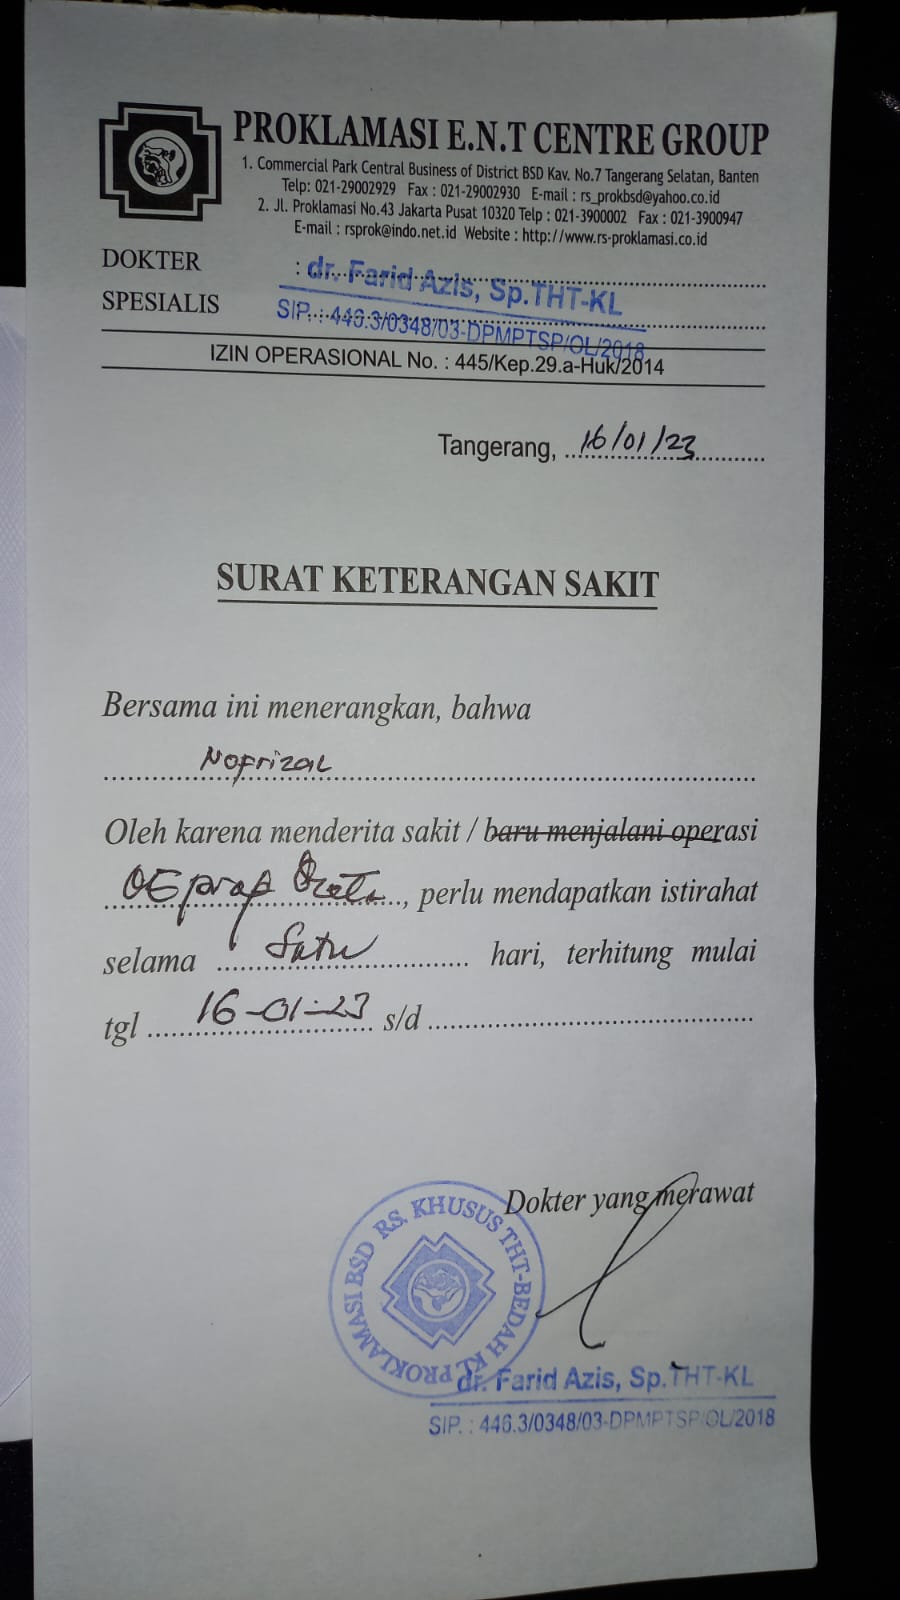 PROKLAMASI E.N.T CENTRE GROUP
1. Commercial Park Central Business of District BSD Kav. No.7 Tangerang Selatan, Banten
Telp: 021-29002929 Fax : 021-29002930 E-mail : rs_prokbsd@yahoo.co.id
2. Jl. Proklamasi No.43 Jakarta Pusat 10320 Telp : 021-3900002 Fax : 021-3900947
E-mail : rsprok@indo.net.id Website : http://www.rs-proklamasi.co.id
DOKTER : dr. Farid Azis, Sp.THT-KL
SPESIALIS SIP. : 446.3/0348/03-DPMPTSP/OL/2018
IZIN OPERASIONAL No. : 445/Kep.29.a-Huk/2014
Tangerang, 16/01/23
SURAT KETERANGAN SAKIT
Bersama ini menerangkan, bahwa
Nofrizal
Oleh karena menderita sakit / baru menjalani operasi
, perlu mendapatkan istirahat
selama Satu hari, terhitung mulai
tgl 16-01-23 s/d
Dokter yang merawat
RS. KHUSUS THT-BEDAH KL PROKLAMASI BSD
dr. Farid Azis, Sp.THT-KL
SIP. : 446.3/0348/03-DPMPTSP/OL/2018